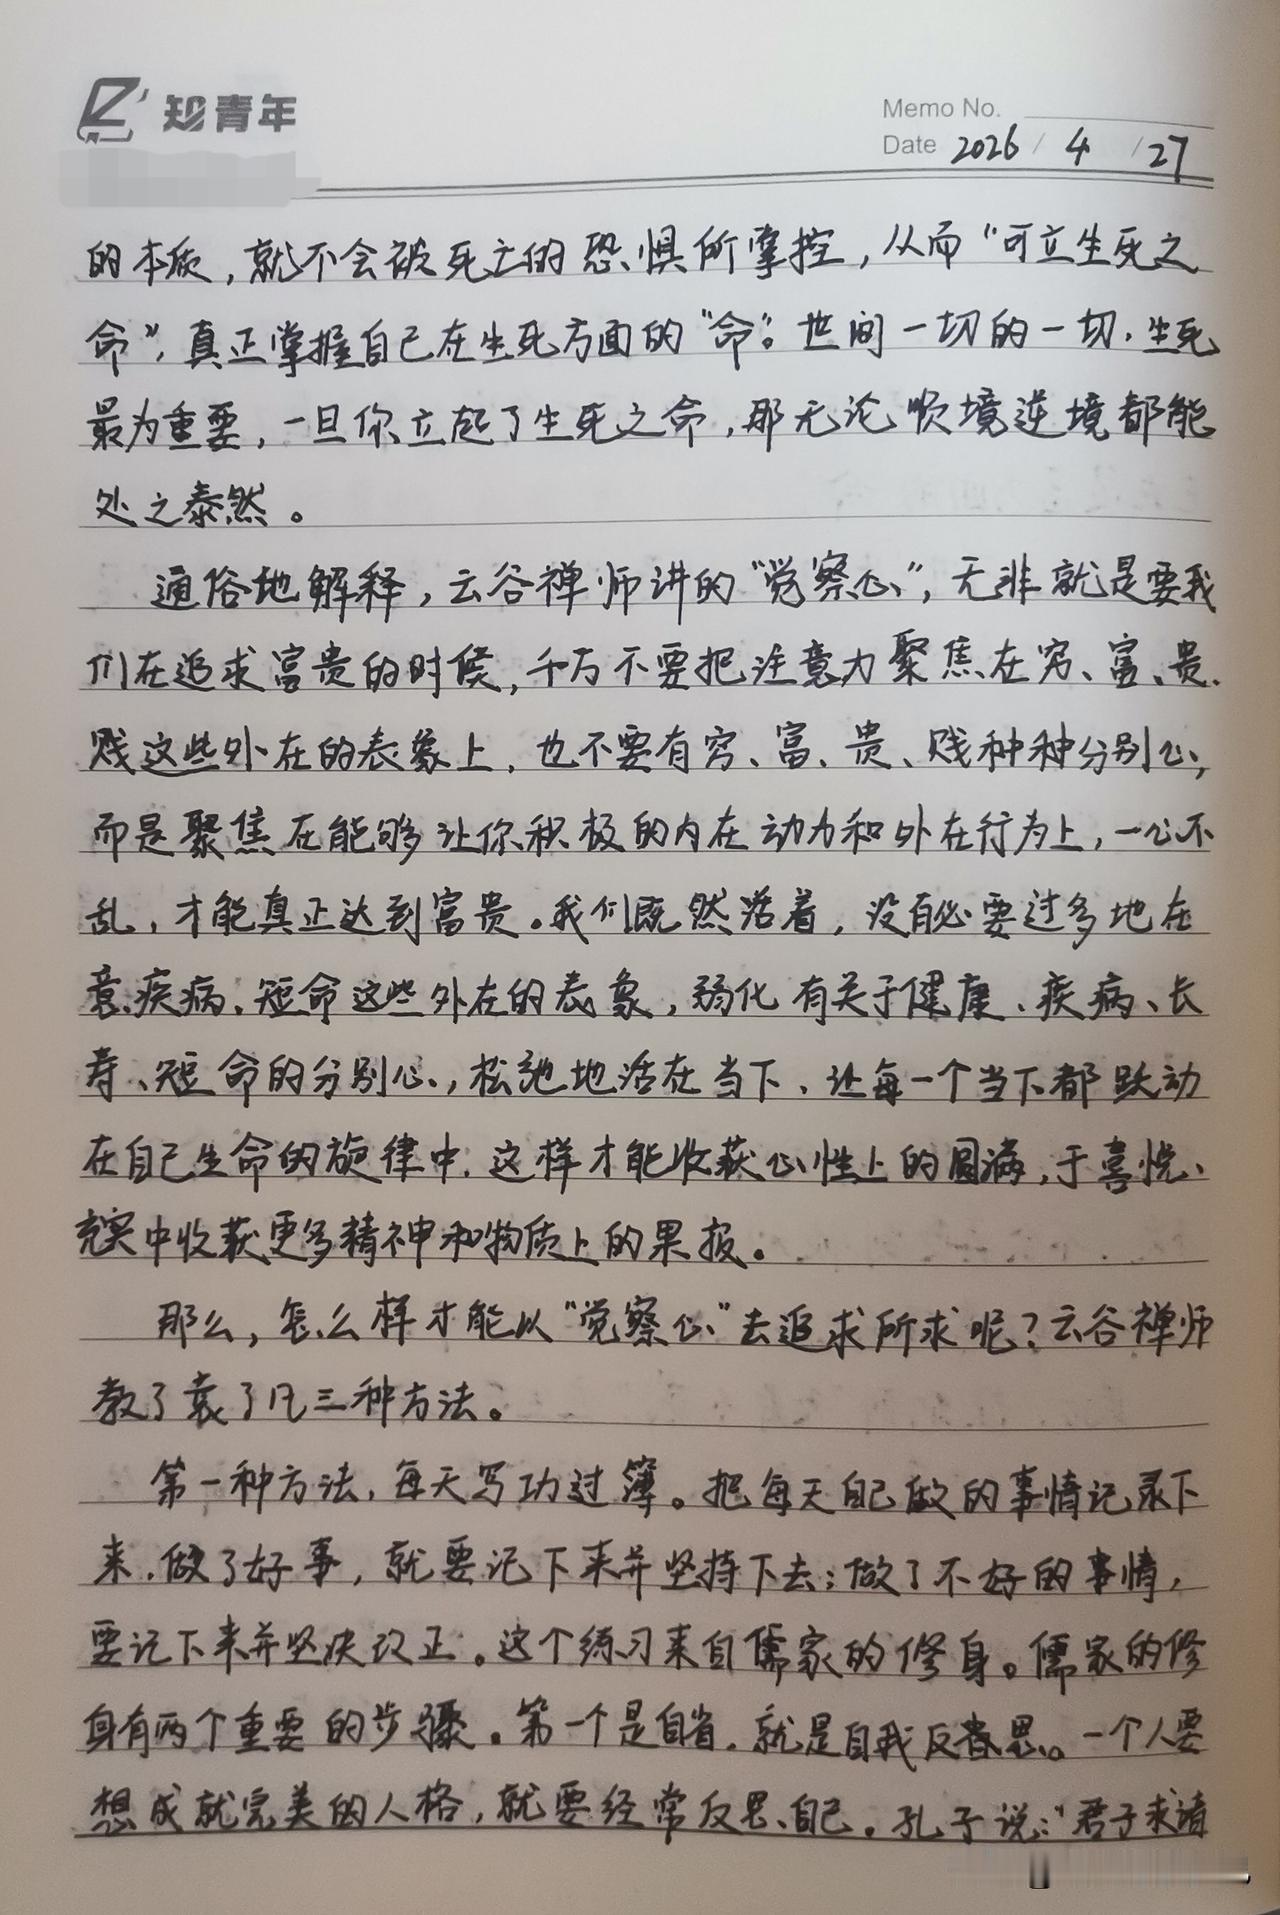 知青年
Memo No.
Date 2026 / 4 / 27
的本质，就不会被死亡的恐惧所掌控，从而“可立生死之
命”，真正掌握自己在生死方面的“命”。世间一切的一切，生死
最为重要，一旦你立起了生死之命，那无论顺境逆境都能
处之泰然。
通俗地解释，云谷禅师讲的“觉察心”，无非就是要我
们在追求富贵的时候，千万不要把注意力聚焦在穷、富、贵、
贱这些外在的表象上，也不要有穷、富、贵、贱种种分别心，
而是聚焦在能够让你积极的内在动力和外在行为上，一心不
乱，才能真正达到富贵。我们既然活着，没有必要过多地在
意疾病、短命这些外在的表象，弱化有关于健康、疾病、长
寿、短命的分别心，松弛地活在当下，让每一个当下都跃动
在自己生命的旋律中，这样才能收获心性上的圆满，于喜悦、
充实中收获更多精神和物质上的果报。
那么，怎么样才能以“觉察心”去追求所求呢？云谷禅师
教了袁了凡三种方法。
第一种方法，每天写功过簿。把每天自己做的事情记录下
来，做了好事，就要记下来并坚持下去；做了不好的事情，
要记下来并坚决改正。这个练习来自儒家的修身。儒家的修
身有两个重要的步骤。第一个是自省，就是自我反思。一个人要
想成就完美的人格，就要经常反思自己。孔子说：“君子求诸